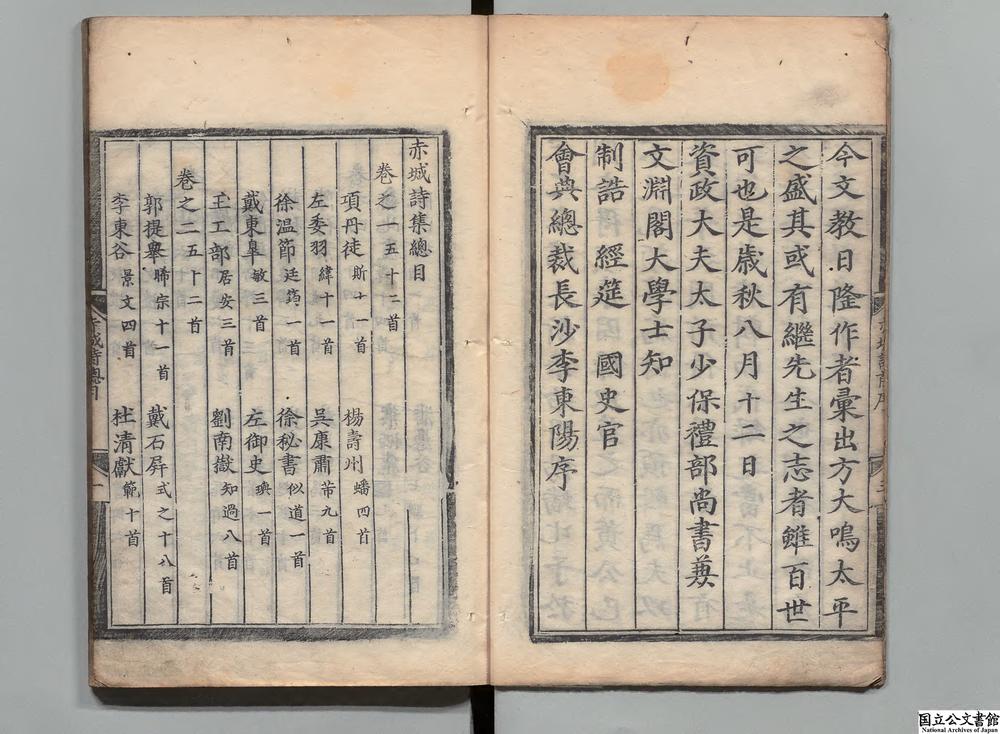 今文教日隆作者彙出方大鳴太平
之盛其或有繼先生之志者雖百世
可也是歳秋八月十二日
資政大夫太子少保禮部尚書兼
文淵閣大學士知
制誥 經筵 國史官
會典總裁長沙李東陽序
赤城詩集總目
卷之一五十二首
項丹徒斯十一首 楊壽州蟠四首
左委羽緯十一首 吳康肅芾九首
徐温節廷筠一首 徐秘書似道一首
戴東皐敏三首 左御史璵一首
王工部居安三首 劉南嶽知過八首
卷之二五十二首
郭提舉晞宗十一首 戴石屏式之十八首
李東谷景文四首 杜清獻範十首
赤城詩總目
一
国立公文書館
National Archives of Japan